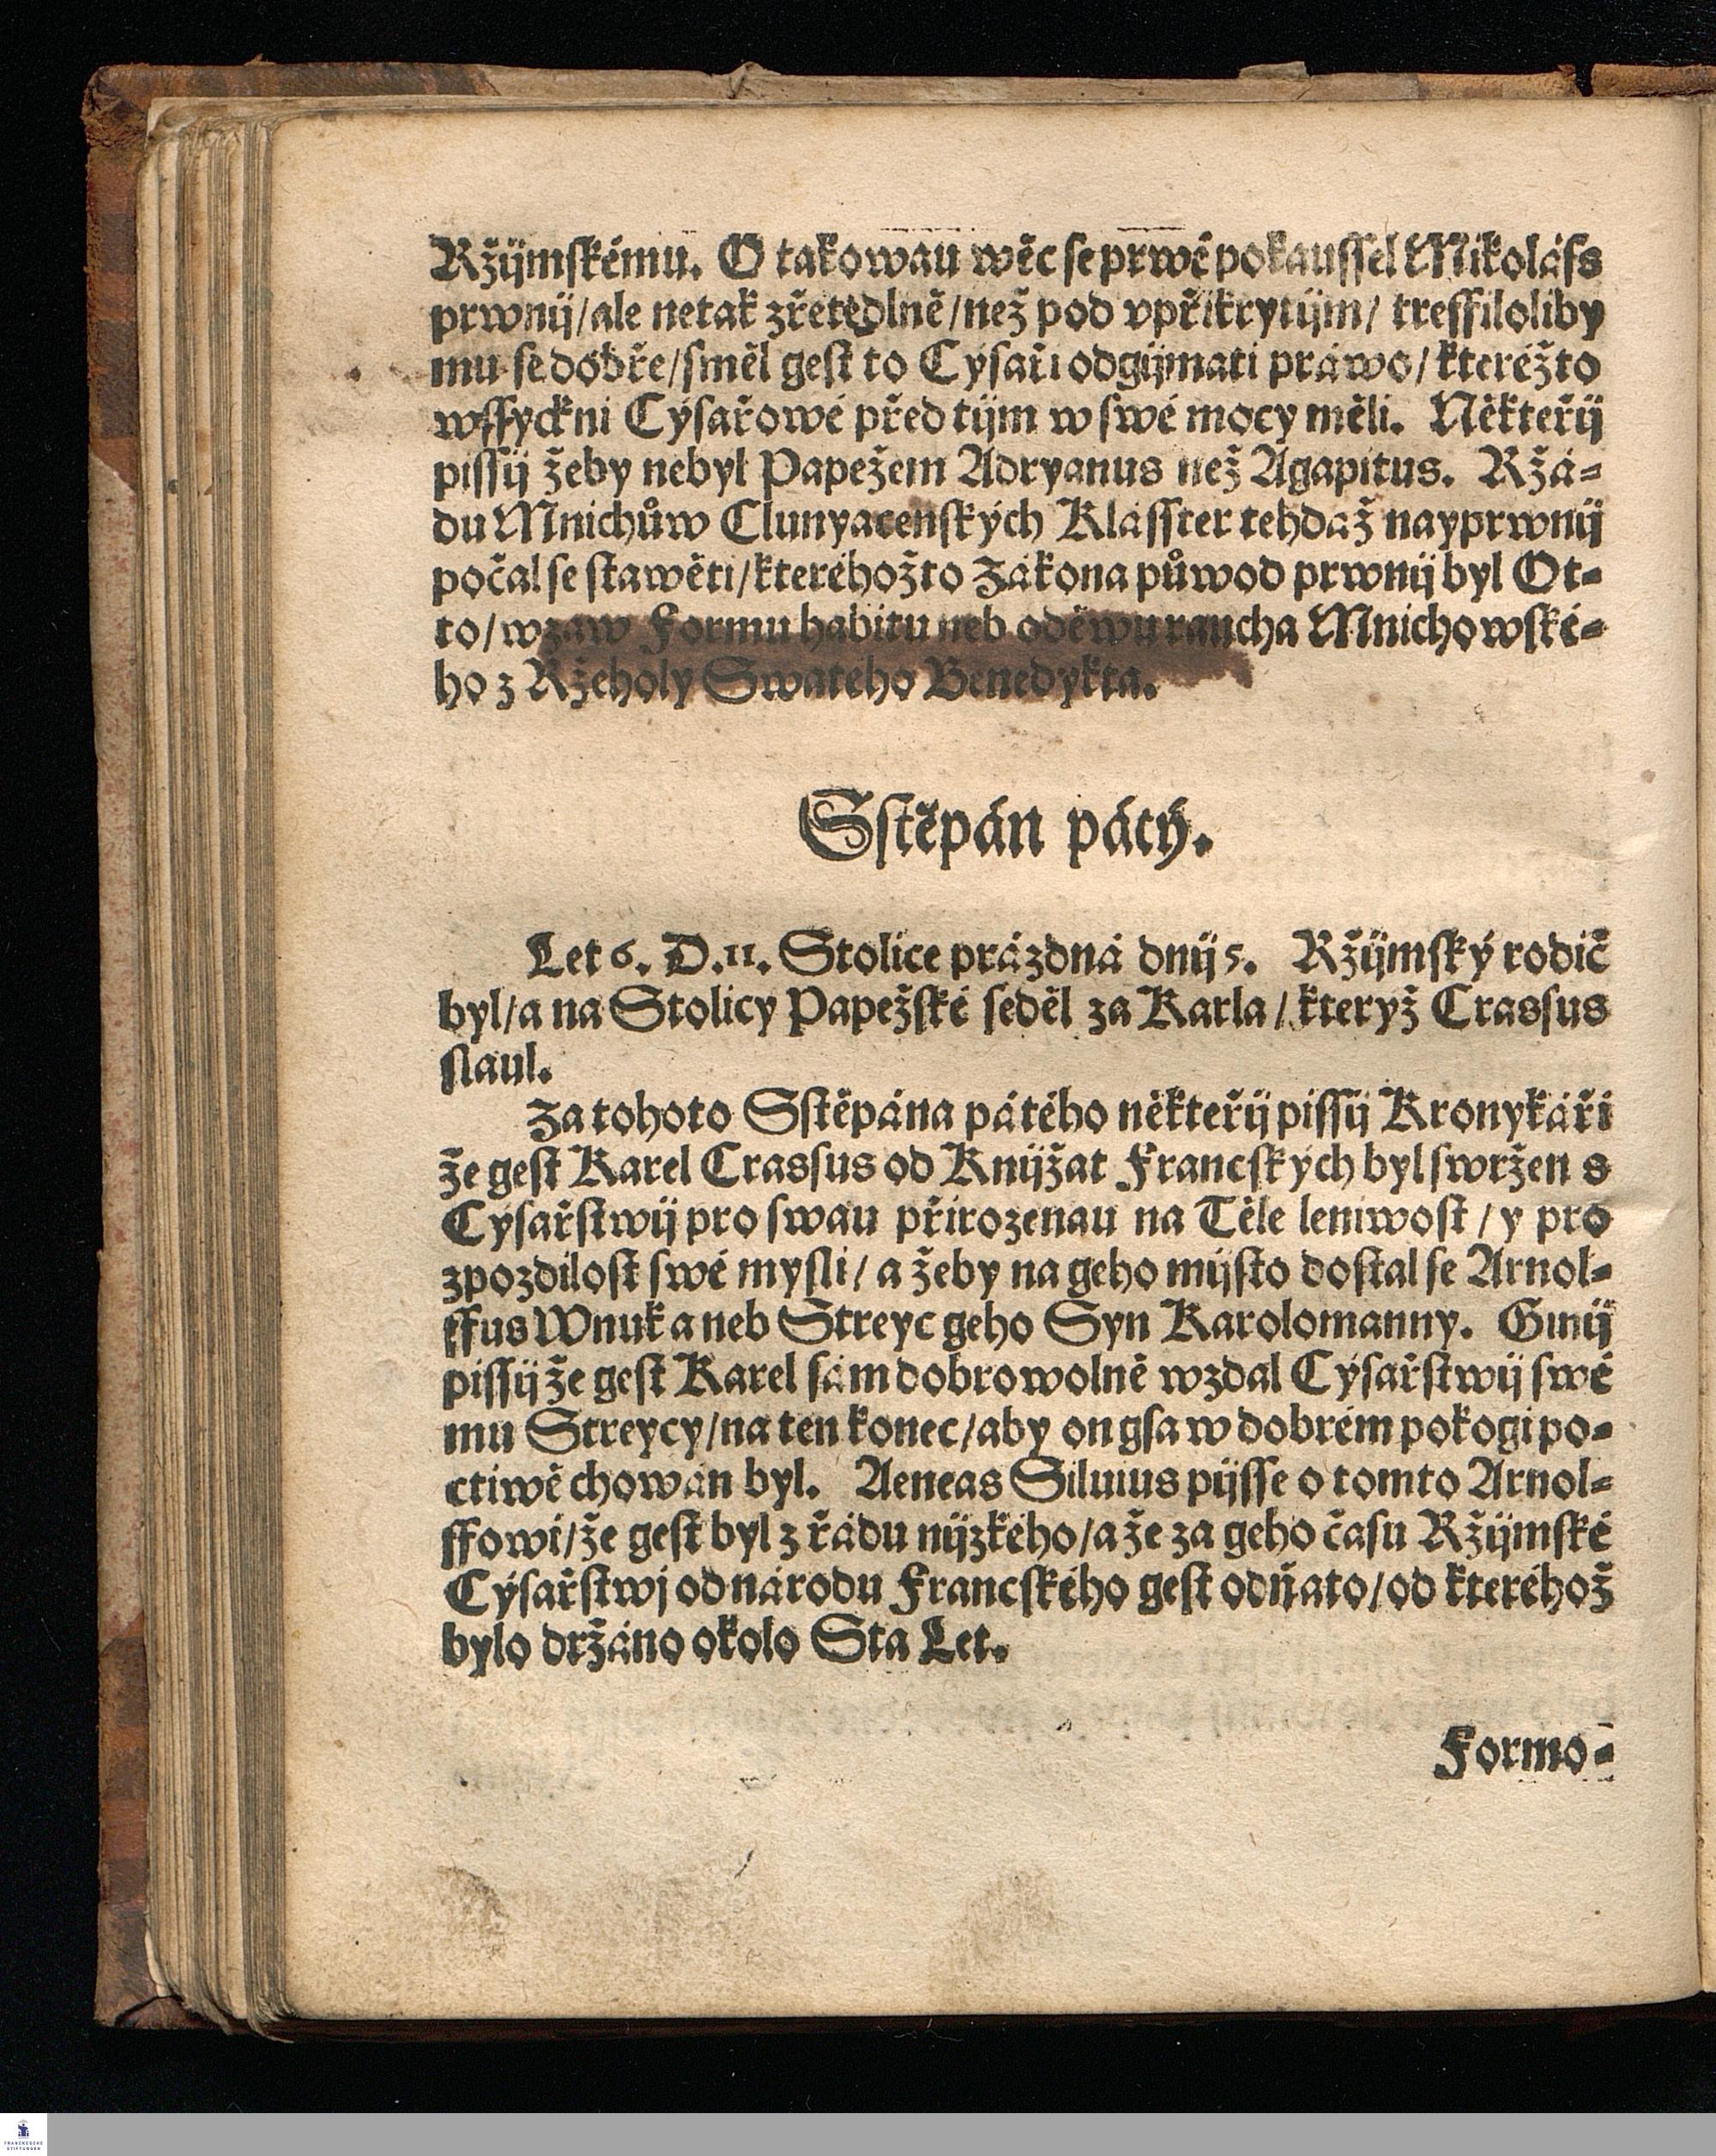 Ržijmſkému. O takowau wěc ſe prwé pokauſſel Mikoláſs
prwnij/ ale netak zřetedlně/ než pod vpřikrytijm/ treffiloliby
mu ſe dobře/ ſměl geſt to Cýſaři odgijmati práwo/ kteréžto
wſſyckni Cýſařowé před tijm w ſwé mocy měli. Někteřij
piſſij žeby nebyl Papežem Adryanus než Agapitus. Ržá⸗
du Mnichůw Clunyacenſkých Kláſſter tehdaž nayprwnij
počal ſe ſtawěti/ kteréhožto Zákona půwod prwnij byl Ot⸗
to/ wzaw Formu habitu neb oděwu raucha Mnichowſké⸗
ho z Ržeholy Swatého Benedykta.
Sſtěpán pátý.
Let 6. D. 11. Stolice prázdná dnij 5. Ržijmſký rodič
byl/ a na Stolicy Papežſké ſeděl za Karla/ kterýž Crasſus
ſlaul.
Za tohoto Sſtěpána pátého někteřij piſſij Kronykáři
že geſt Karel Crasſus od Knijžat Francſkých byl ſwržen s
Cýſařſtwij pro ſwau přirozenau na Těle leniwoſt/ y pro
zpozdiloſt ſwé myſli/ a žeby na geho mijſto doſtal ſe Arnol⸗
ffus Wnuk a neb Streyc geho Syn Karolomanny. Ginij
piſſij že geſt Karel ſám dobrowolně wzdal Cýſařſtwij ſwé
mu Streycy/ na ten konec/ aby on gſa w dobrém pokogi po⸗
ctiwě chowán byl. Aeneas Siluius pijſſe o tomto Arnol⸗
ffowi/ že geſt byl z řádu nijzkého/ a že za geho času Ržijmſké
Cýſařſtwj od národu Francſkého geſt odňato/ od kteréhož
bylo držáno okolo Sta Let.
Formo⸗
FRANCKESCHE
STIFTUNGEN